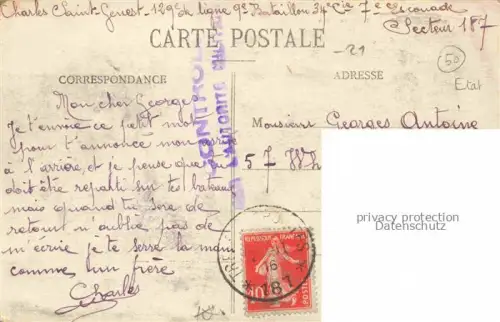 Charles Saint-Genest-129e de ligne 9e Bataillon 34e Cie 7e Escouade
Secteur 187
CARTE POSTALE
-21
50
Etat
CORRESPONDANCE
ADRESSE
CONTROLE
AUTORITE MILITAIRE
Mon cher Georges
Je t'envoie ce petit mot
pour t'annoncé mon
à l'arrière, et je pense que tu
doit être reparti sur tes bateau
mais quand tu sera de
retour n'oublie pas de
m'écrire je te serre la main
comme un frère
Charles
Monsieur Georges Antoine
57
privacy protection
Datenschutz
16
* 187 *
10